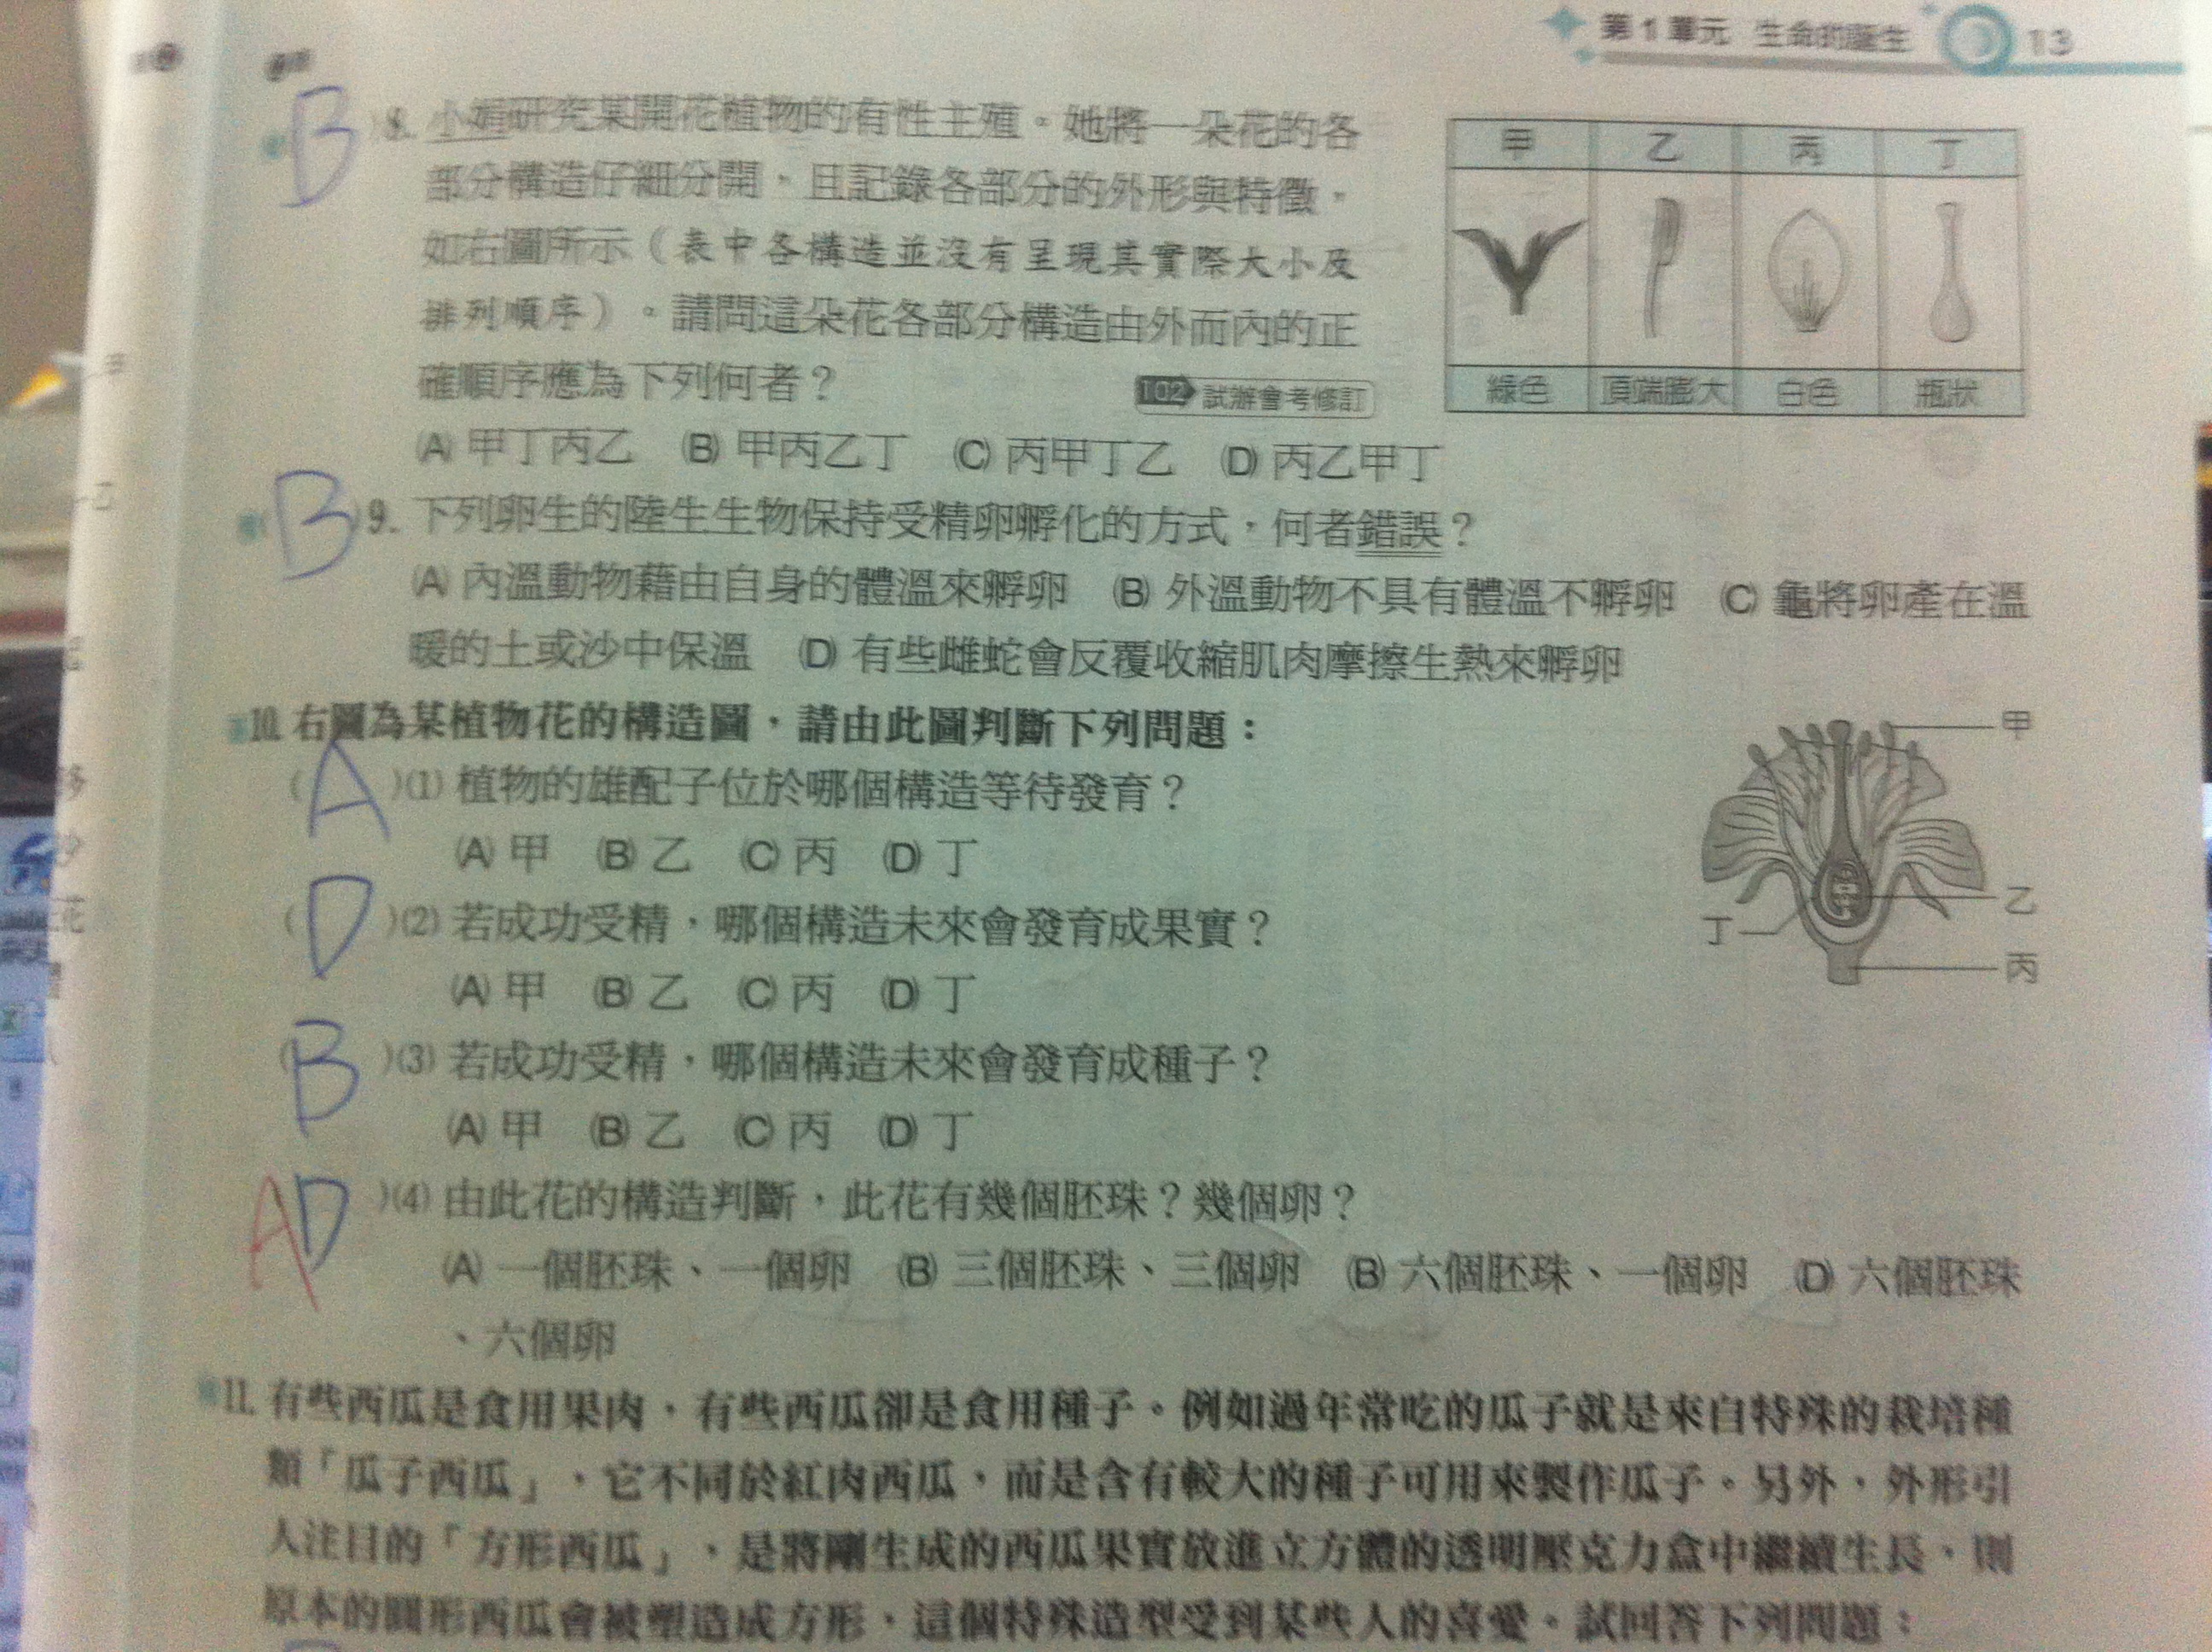 第1單元 生命的誕生 13
B )8. 小娟研究某開花植物的有性生殖。她將一朵花的各
部分構造仔細分開,且記錄各部分的外形與特徵,
如右圖所示(表中各構造並沒有呈現其實際大小及
排列順序)。請問這朵花各部分構造由外而內的正
確順序應為下列何者? 102 試辦會考修訂
甲 乙 丙 丁
綠色 頂端膨大 白色 瓶狀
(A) 甲丁丙乙 (B) 甲丙乙丁 (C) 丙甲丁乙 (D) 丙乙甲丁
( B )9. 下列卵生的陸生生物保持受精卵孵化的方式,何者錯誤?
(A) 內溫動物藉由自身的體溫來孵卵 (B) 外溫動物不具有體溫不孵卵 (C) 龜將卵產在溫
暖的土或沙中保溫 (D) 有些雌蛇會反覆收縮肌肉摩擦生熱來孵卵
10. 右圖為某植物花的構造圖,請由此圖判斷下列問題:
( A )(1) 植物的雄配子位於哪個構造等待發育?
(A) 甲 (B) 乙 (C) 丙 (D) 丁
( D )(2) 若成功受精,哪個構造未來會發育成果實?
(A) 甲 (B) 乙 (C) 丙 (D) 丁
( B )(3) 若成功受精,哪個構造未來會發育成種子?
(A) 甲 (B) 乙 (C) 丙 (D) 丁
甲
乙
丁
丙
A D )(4) 由此花的構造判斷,此花有幾個胚珠?幾個卵?
(A) 一個胚珠、一個卵 (B) 三個胚珠、三個卵 (B) 六個胚珠、一個卵 (D) 六個胚珠
、六個卵
11. 有些西瓜是食用果肉,有些西瓜卻是食用種子。例如過年常吃的瓜子就是來自特殊的栽培種
類「瓜子西瓜」,它不同於紅肉西瓜,而是含有較大的種子可用來製作瓜子。另外,外形引
人注目的「方形西瓜」,是將剛生成的西瓜果實放進立方體的透明壓克力盒中繼續生長,則
原本的圓形西瓜會被塑造成方形,這個特殊造型受到某些人的喜愛。試回答下列問題: